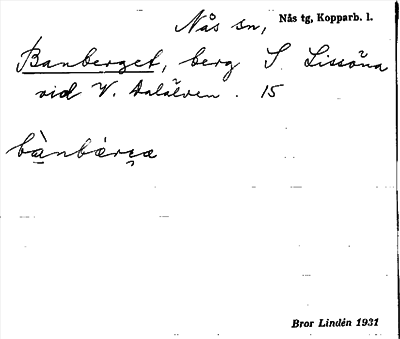 Nås sn, Nås tg, Kopparb. l.
Banberget, berg S. Lissöna
vid V. Dalälven. 15
bànbárçæ
Bror Lindén 1931